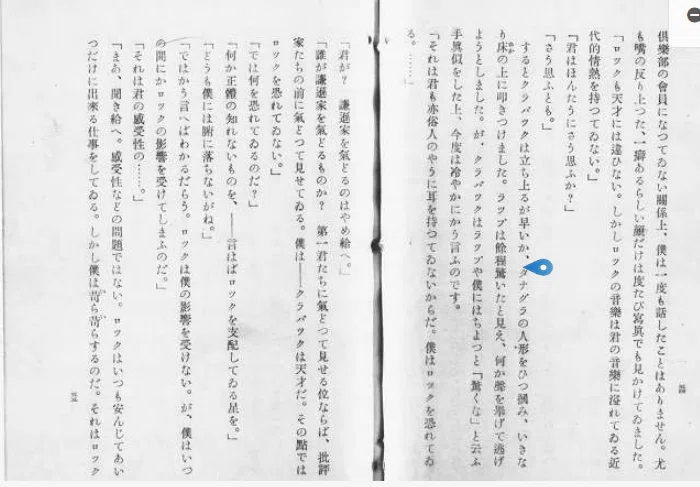 倶樂部の會員になつてゐない關係上、僕は一度も話したことはありません。尤
も嘴の反り上つた、一癖あるらしい顏だけは度たび寫眞でも見かけてゐました。
「ロックも天才には違ひない。しかしロックの音樂は君の音樂に溢れてゐる近
代的情熱を持つてゐない。」
「君はほんたうにさう思ふか？」
「さう思ふとも。」
するとクラバックは立ち上るが早いか、タナグラの人形をひつ摑み、いきな
り床の上に叩きつけました。ラップは餘程驚いたと見え、何か聲を擧げて逃げ
ようとしました。が、クラバックはラップや僕にはちよつと「驚くな」と云ふ
手眞似をした上、今度は冷やかにかう言ふのです。
「それは君も亦俗人のやうに耳を持つてゐないからだ。僕はロックを恐れてゐ
る。……」
「君が？　謙遜家を氣どるのはやめ給へ。」
「誰が謙遜家を氣どるものか？　第一君たちに氣どつて見せる位ならば、批評
家たちの前に氣どつて見せてゐる。僕は――クラバックは天才だ。その點では
ロックを恐れてゐない。」
「では何を恐れてゐるのだ？」
「何か正體の知れないものを、――言はばロックを支配してゐる星を。」
「どうも僕には腑に落ちないがね。」
「ではかう言へばわかるだらう。ロックは僕の影響を受けない。が、僕はいつ
の間にかロックの影響を受けてしまふのだ。」
「それは君の感受性の……。」
「まあ、聞き給へ。感受性などの問題ではない。ロックはいつも安んじてあい
つだけに出來る仕事をしてゐる。しかし僕は苛ら苛らするのだ。それはロック